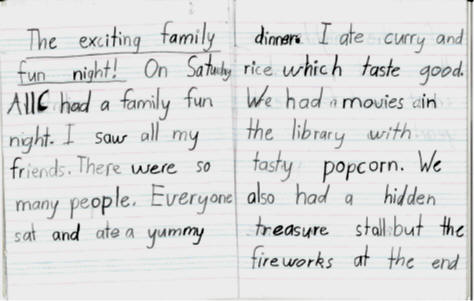 The exciting family
fun night! On Satuday
AIIC had a family fun
night. I saw all my
friends. There were so
many people. Everyone
sat and ate a yummy
dinner. I ate curry and
rice which taste good.
We had a movies in
the library with
tasty popcorn. We
also had a hidden
treasure stall but the
fireworks at the end